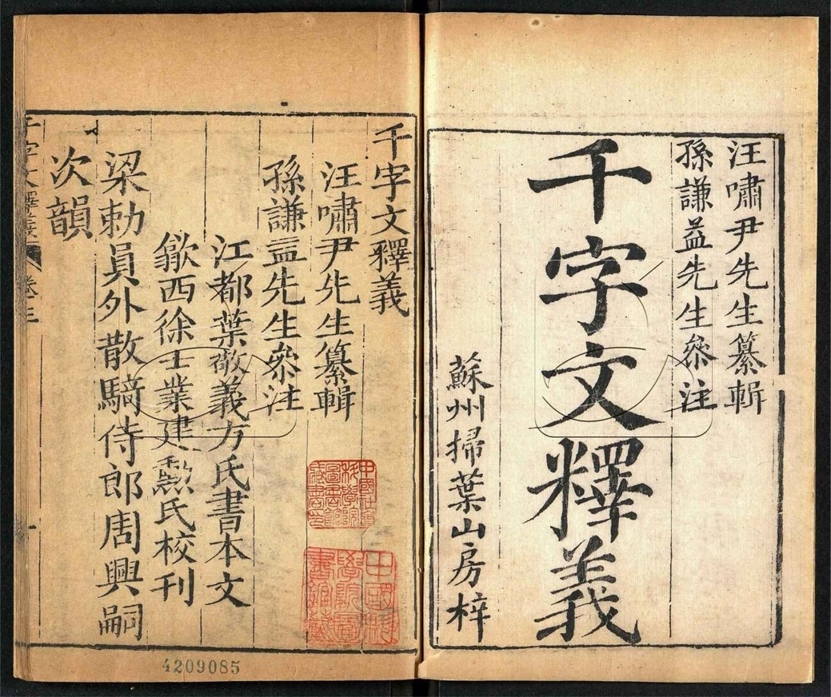 汪嘯尹先生纂輯
孫謙益先生叅注
千字文釋義
蘇州掃葉山房梓
千字文釋義
汪嘯尹先生纂輯
孫謙益先生叅注
江都葉敬義方氏書本文
歙西徐士業建勲氏校刊
梁勅員外散騎侍郎周興嗣
次韻
千字文釋義
卷三
4209085